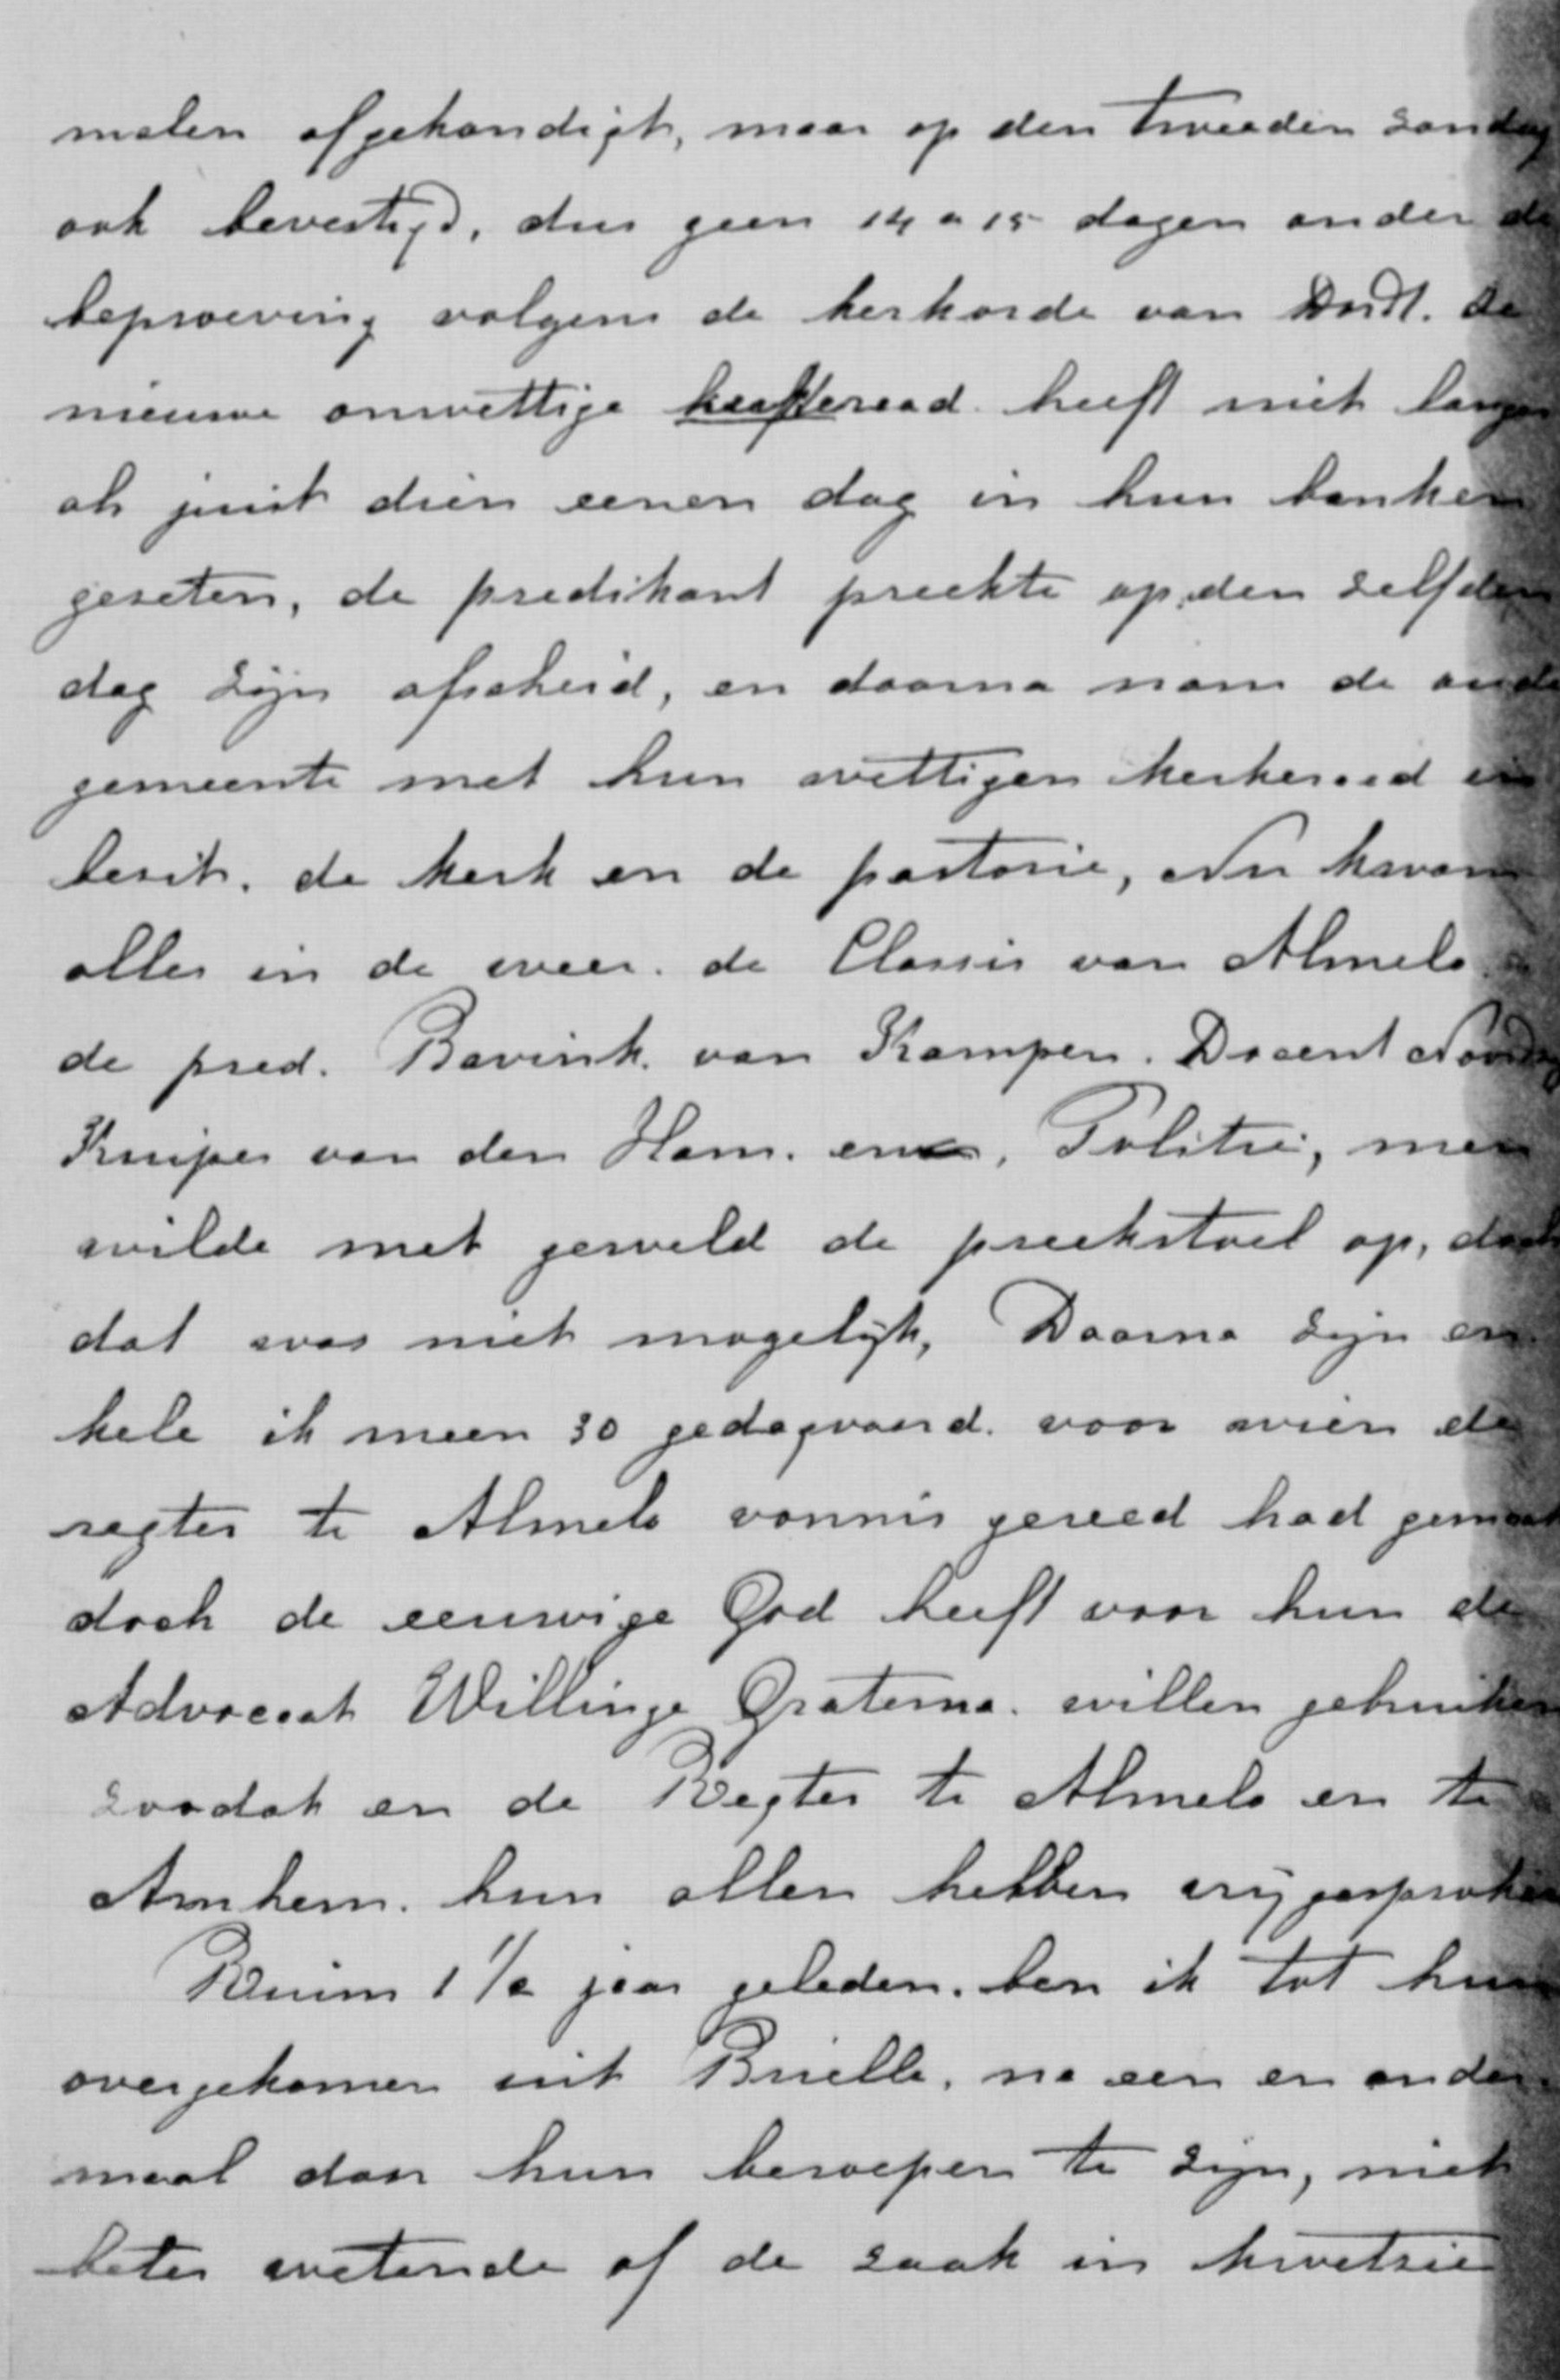 malen afgekondigt, maar op den tweeden zondag
ook bevestigd, dus geen 14 a 15 dagen onder de
beproeving volgens de kerkorde van Dordt. de
nieuwe onwettige kerkeraad heeft niet langer
als juist dien eenen dag in hun banken
gezeten, de predikant preekte op den zelfden
dag zijn afscheid, en daarna nam de oude
gemeente met hun wettigen kerkeraad in
bezit. de kerk en de pastorie, Nu kwam
alles in de weer. de Classis van Almelo
de pred. Bavink. van Kampen. Docent
Kuiper van den Ham. en, Politie, men
wilde met geweld de preekstoel op, doch
dat was niet mogelijk, Daarna zijn en
kele ik meen 30 gedagvaard. voor wien de
regter te Almelo vonnis gereed had gemaakt
doch de eeuwige God heeft voor hun de
Advocaat Willinge Gratema. willen gebruiken
zoodat en de Regter te Almelo en te
Arnhem. hun allen hebben vrijgesproken
Ruim 1 1/2 jaar geleden. ben ik tot hun
overgekomen uit Brielle, na een en ander
maal door hun beroepen te zijn, niet
beter wetende of de zaak in kwetsie